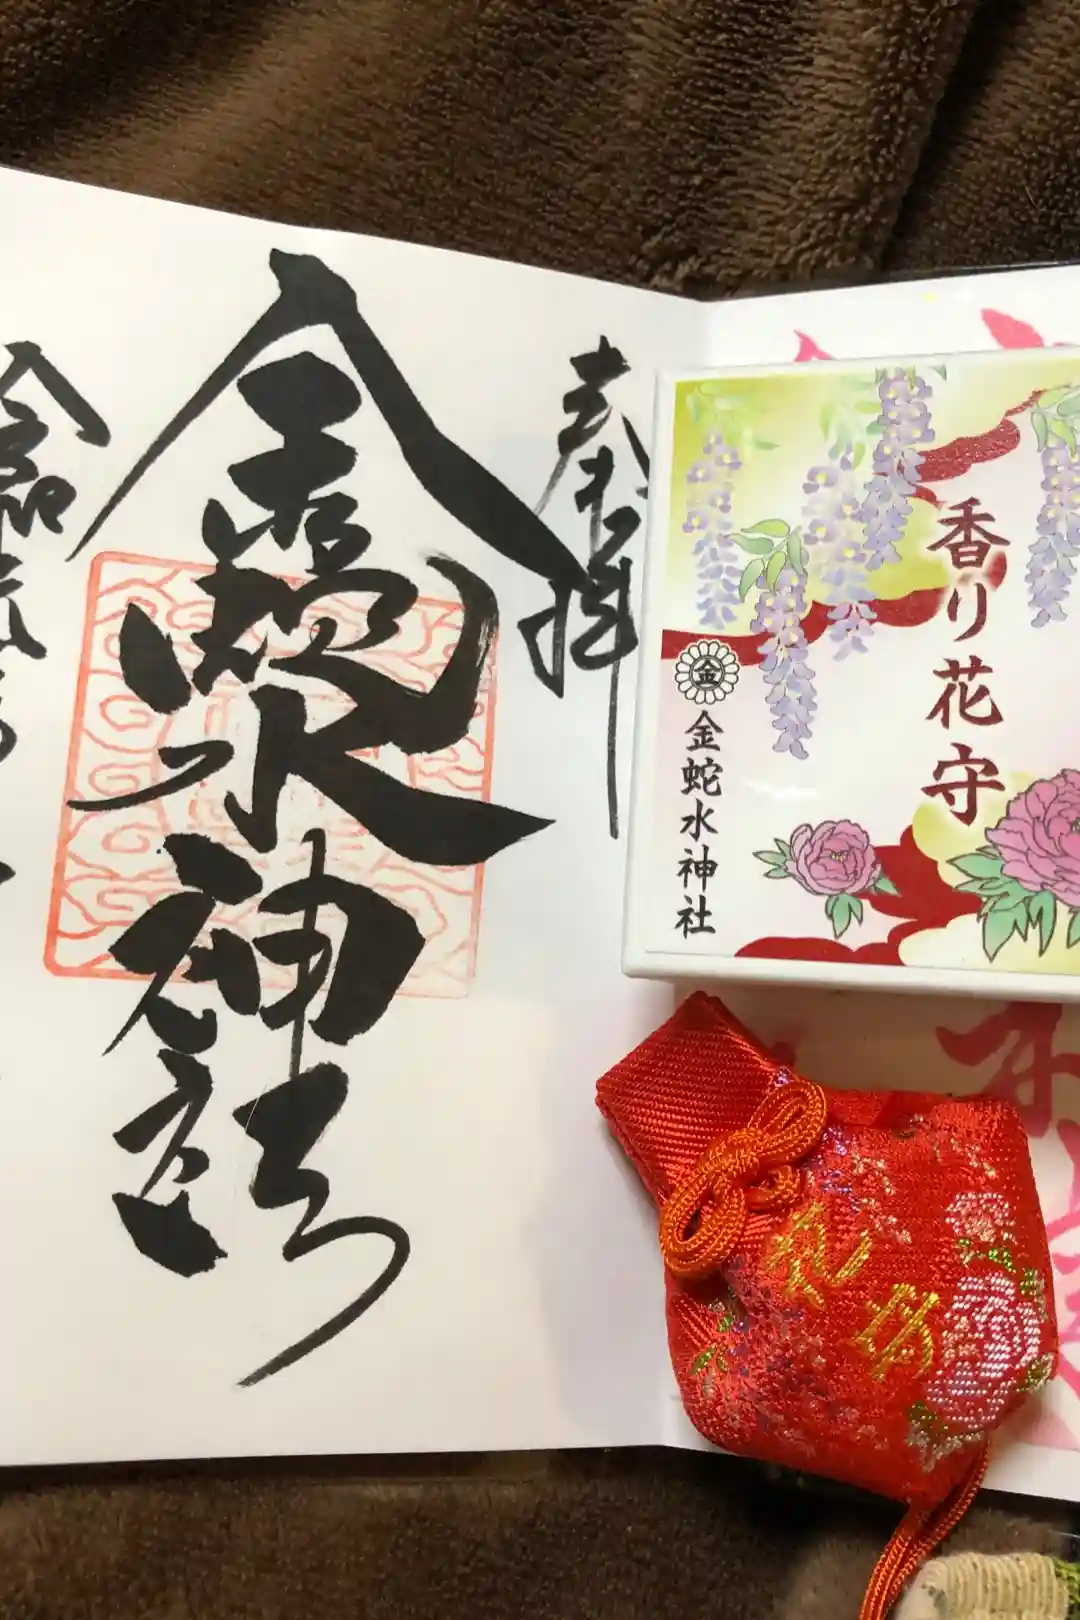 奉拝
金蛇水神社
令和
香り花守
金
金蛇水神社
花守